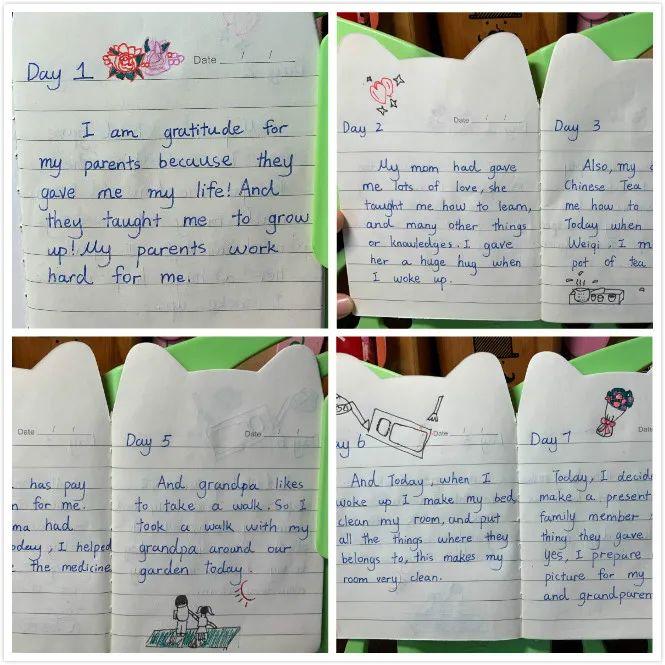 Day 1
Date / /
I am gratitude for
my parents because they
gave me my life! And
they taught me to grow
up! My parents work
hard for me.
Date / /
Day 2
My mom had gave
me lots of love, she
taught me how to learn,
and many other things
or knowledges. I gave
her a huge hug when
I woke up.
Day 3
Also, my
Chinese Tea
me how to
Today when
Weiqi, I m
pot of tea
Date / /
has pay
n for me.
ma had
oday, I helped
The medicine
Day 5
Date / /
And grandpa likes
to take a walk. So I
took a walk with my
grandpa around our
garden today.
Date / /
ay 6
And Today, when I
woke up I make my bed,
clean my room, and put
all the things where they
belongs to, this makes my
room very clean.
Day 7
Today, I decid
make a present
family member
thing they gave
yes, I prepare
picture for my
and grandparen